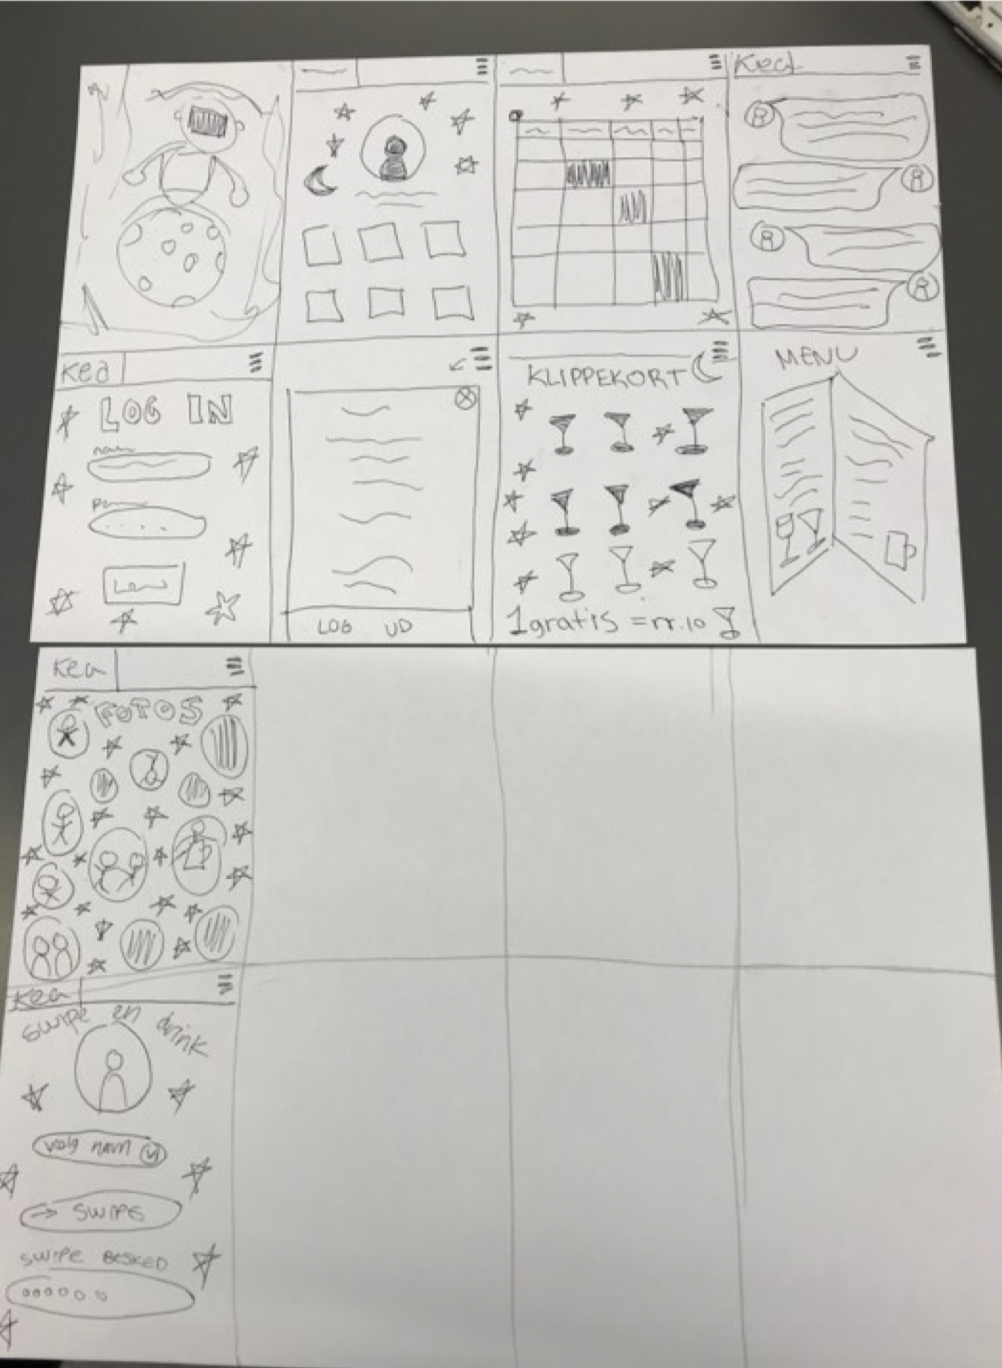 Kea
Kea
LOG IN
LOG UD
KLIPPEKORT
1 gratis = nr.10
MENU
Kea
FOTOS
Kea
swipe en drink
vælg navn
→ SWIPE
SWIPE BESKED